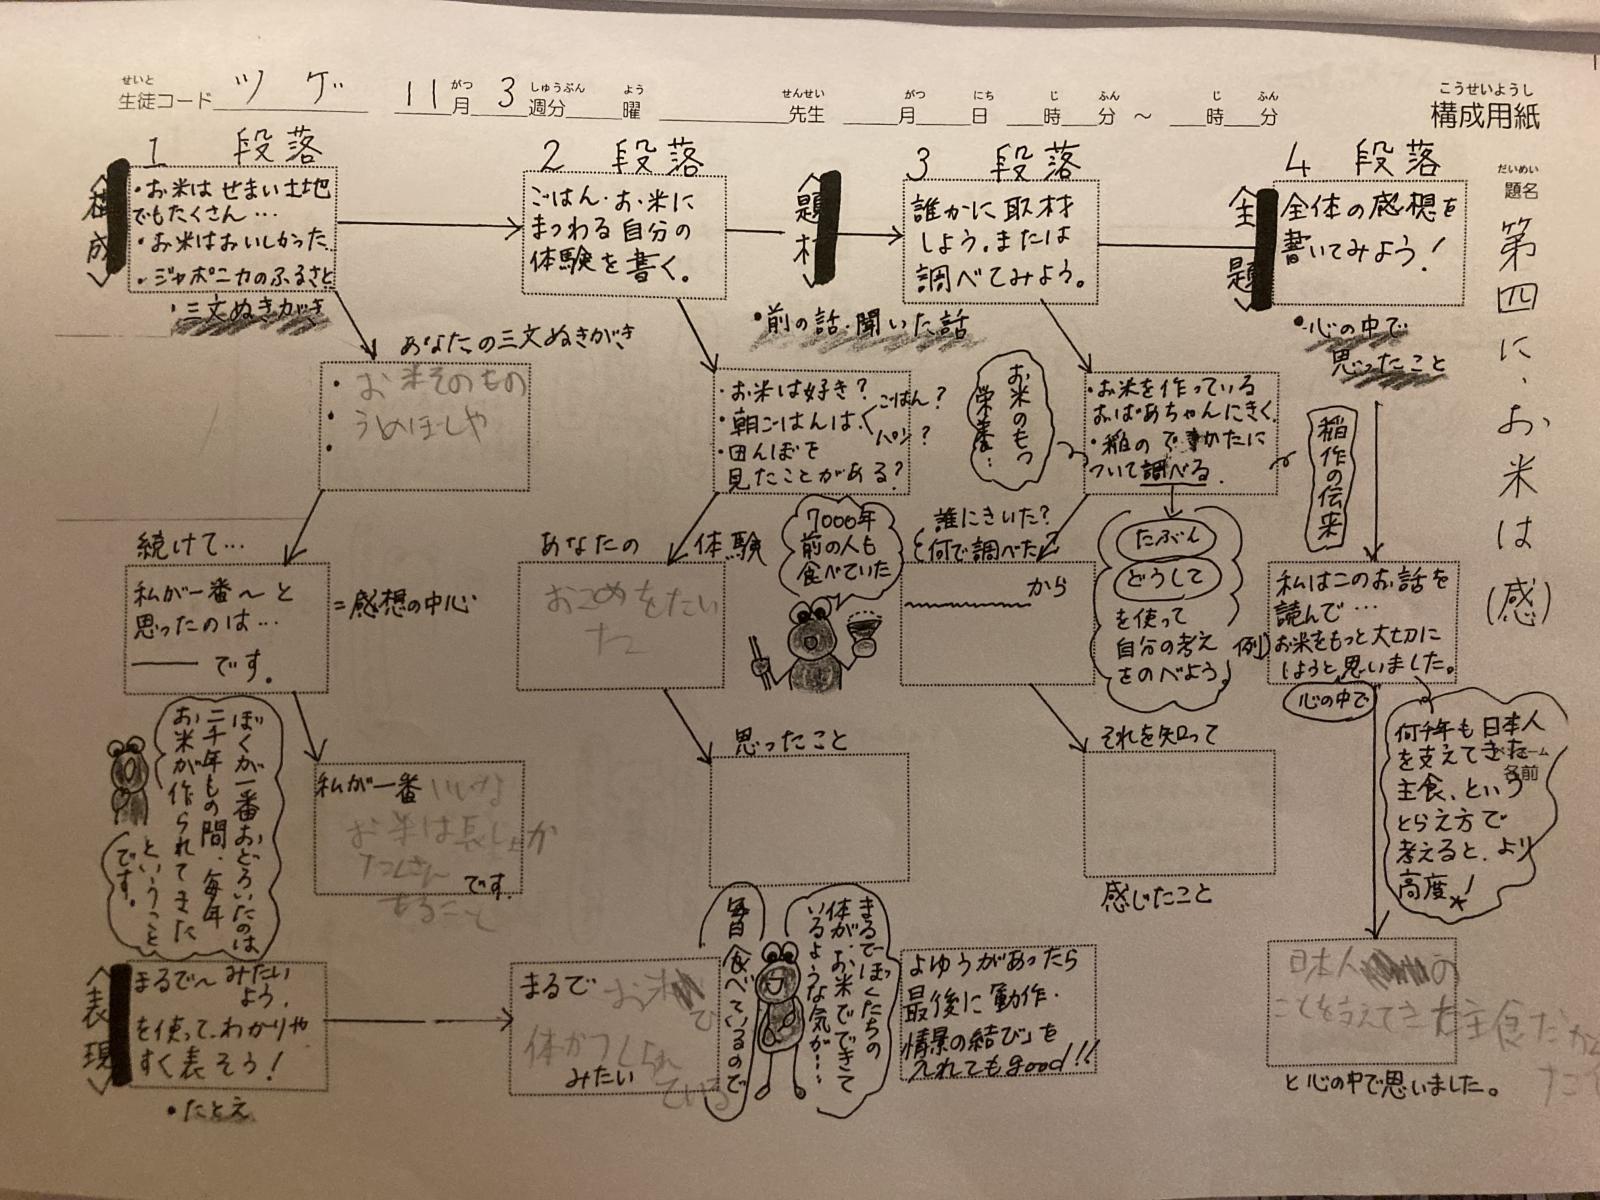 せいと
生徒コード ツ ゲ 11 月 3 週分 曜 先生 月 日 時 分 ～ 時 分
がつ しゅうぶん よう せんせい がつ にち じ ふん じ ふん
こうせいようし
構成用紙
だいめい
題名
第四に、お米は(感)
1 段落
構成
・お米はせまい土地
でもたくさん…
・お米はおいしかった
・ジャポニカのふるさと
・三文ぬきがき
あなたの三文ぬきがき
・お米そのもの
・うめぼしや
・
続けて…
私が一番～と
思ったのは…
―― です。
=感想の中心
私が一番
お米は長しょが
たくさん
あること
です
ぼくが一番おどろいたのは
二千年もの間、毎年
お米が作られてきた
ということ
です。
表現
まるで～みたい
よう、
を使って、わかりや
すく表そう!
・たとえ
2 段落
ごはん・お米に
まつわる自分の
体験を書く。
題材
・前の話・聞いた話
・お米は好き?
・朝ごはんは、ごはん?
パン?
・田んぼを
見たことがある?
あなたの 体験
おこめをたい
た
7000年
前の人も
食べていた
思ったこと
まるで お米
で
体がつくられ
ている
みたい
毎日食べているので
まるでぼくたちの
体が、お米でできて
いるような気が…
3 段落
誰かに取材
しよう。または
調べてみよう。
お米のもつ
栄養…
・お米を作っている
おばあちゃんにきく
・稲のでき かたに
ついて調べる。
誰にきいた?
何で調べた?
から
たぶん
どうして
を使って
自分の考え
をのべよう。
それを知って
感じたこと
よゆうがあったら
最後に動作・
情景の結び」を
入れてもgood!!
4 段落
主題
全体の感想を
書いてみよう!
・心の中で
思ったこと
稲作の伝来
例)
私はこのお話を
読んで…
お米をもっと大切に
しようと思いました。
心の中で
何千年も日本人
を支えてきた
主食、という
とらえ方で
考えると、より
高度。!
名前
日本人 の
ことを支えてきた主食だか
と心の中で思いました。